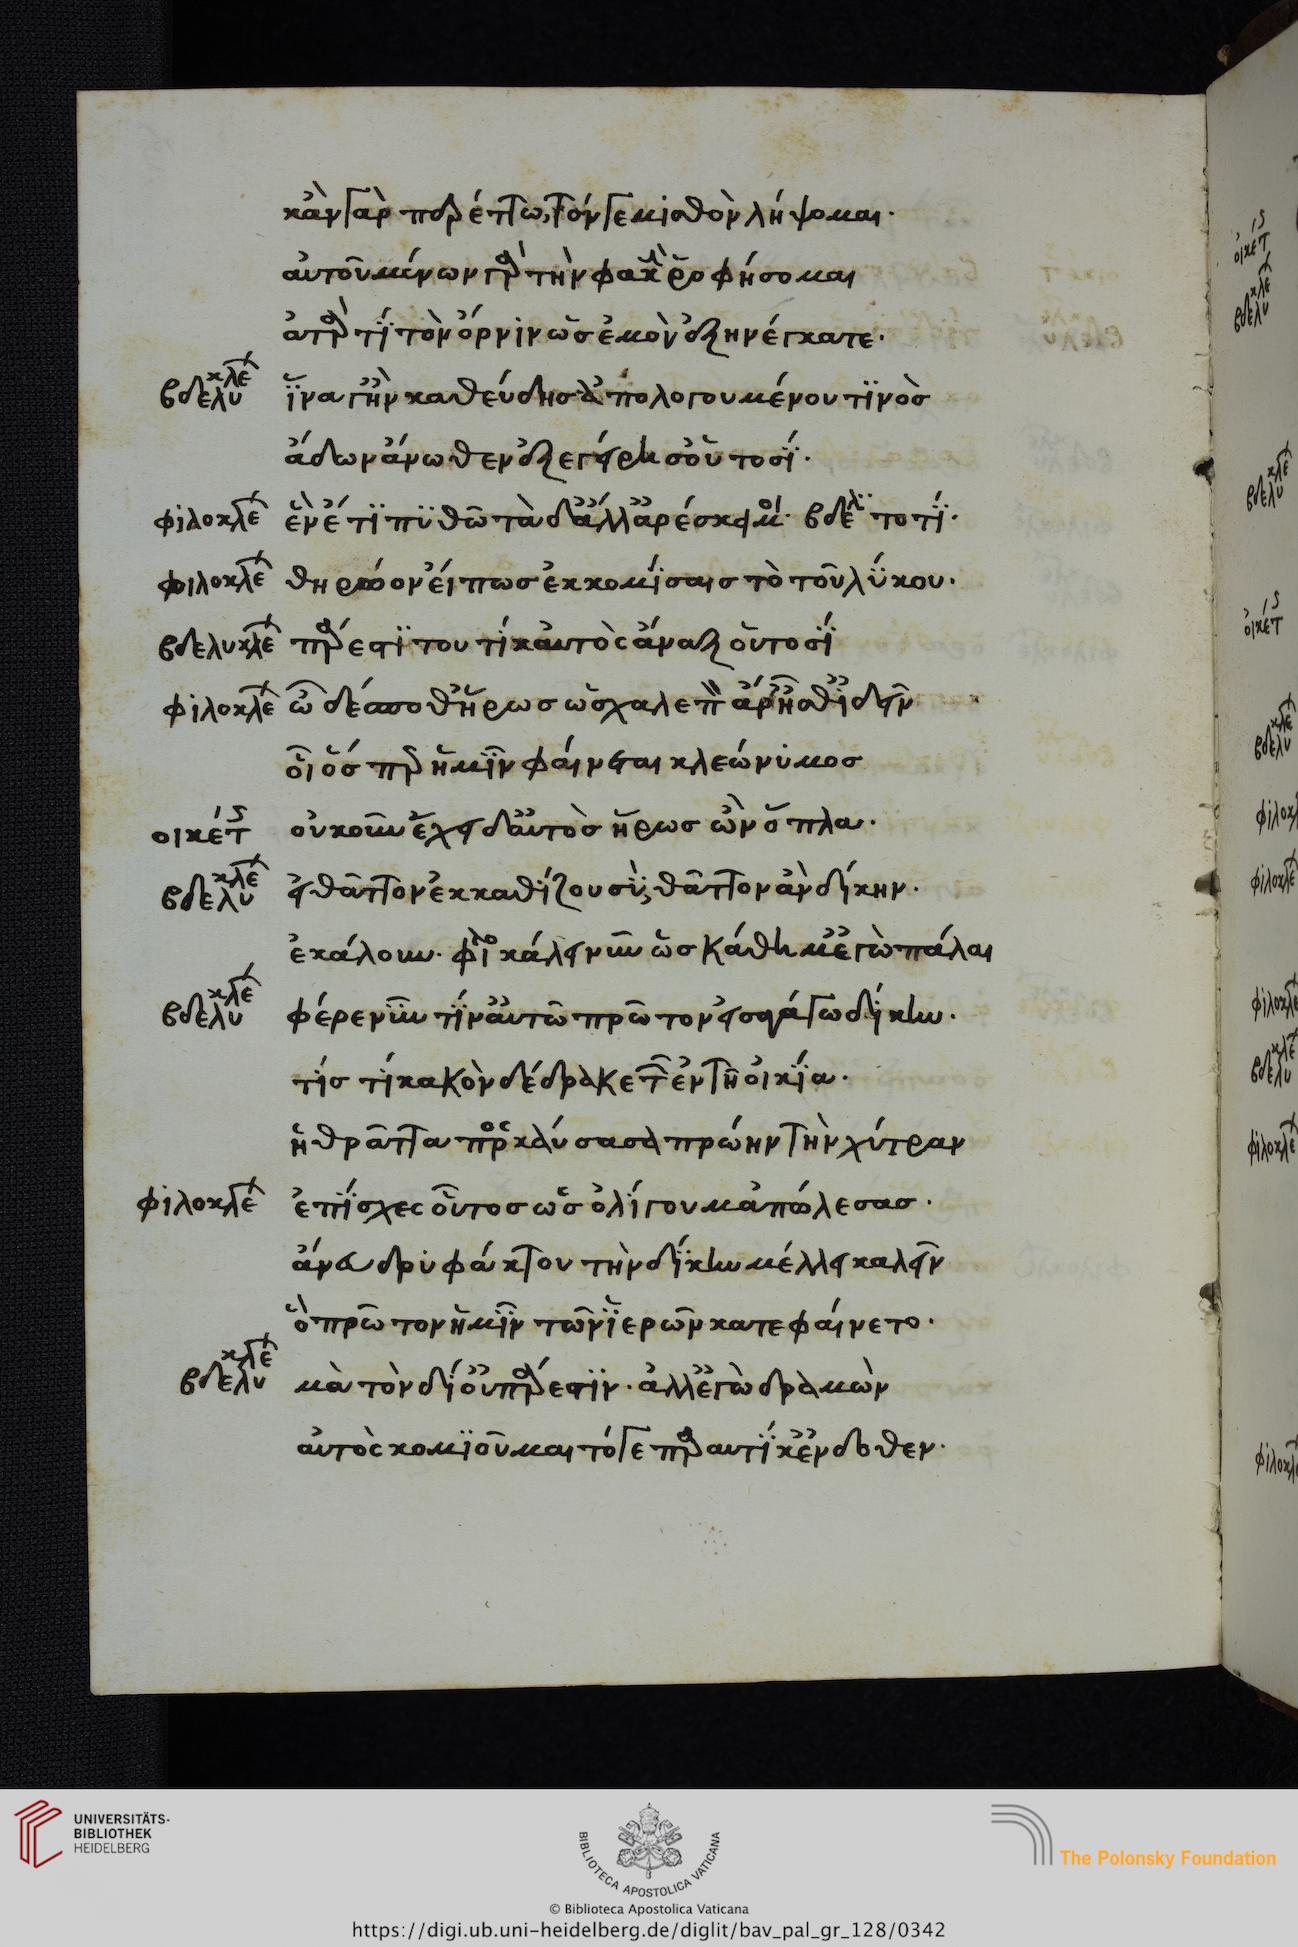 κἂν γὰρ πυρέττω, τόν γε μισθὸν λήψομαι.
αὐτοῦ μένων γὰρ τὴν φακῆν ῥοφήσομαι
ἀτὰρ τί τὸν ὄρνιν ὡς ἐμὲ ἐξηνέγκατε.
βδελυκλέ ἵνα γ' ἢν καθεύδης ἀπολογουμένου τινὸς
ἄδων ἄνωθεν ἐξεγείρη σ' οὑτοσί.
φιλοκλέ ἓν ἔτι ποθῶ τὰ δ' ἄλλ' ἀρέσκει μοι. βδελ τὸ τί.
φιλοκλέ θηρῶον εἴ πως ἐκκομίσαις τὸ τοῦ λύκου.
βδελυκλέ πάρεστι τουτί καὐτὸς ἄναξ οὑτοσί
φιλοκλέ ὦ δέσποθ' ἥρως ὡς χαλεπὸς ἄρ' ἦσθ' ἰδεῖν
οἷός περ ἡμῖν φαίνεται κλεώνυμος
οἰκέτ οὔκουν ἔχει δ' αὐτὸς ἥρως ὢν ὅπλα.
βδελυκλέ εἰ θᾶττον ἐκκαθίζου σύ, θᾶττον ἂν δίκην.
ἐκάλουν. φιλο κάλει νυν ὡς κάθημ' ἐγὼ πάλαι
βδελυκλέ φέρε νῦν τίν' αὐτῶ πρῶτον εἰσαγάγω δίκην.
τίς τί κακὸν δέδρακε τῶν ἐν τῆ οἰκία.
ἡ θρᾶττα προσκαύσασα πρώην τὴν χύτραν
φιλοκλέ ἐπίσχες οὗτος ὡς ὀλίγου μ' ἀπώλεσας.
ἄνευ δρυφάκτου τὴν δίκην μέλλεις καλεῖν
ὃ πρῶτον ἡμῖν τῶν ἱερῶν κατεφαίνετο.
βδελυκλέ μὰ τὸν δί' οὐ πάρεστιν. ἀλλ' ἐγὼ δραμὼν
αὐτὸς κομιοῦμαι τό γε παραυτίκ' ἔνδοθεν.
UNIVERSITÄTS-
BIBLIOTHEK
HEIDELBERG
BIBLIOTECA APOSTOLICA VATICANA
The Polonsky Foundation
© Biblioteca Apostolica Vaticana
https://digi.ub.uni-heidelberg.de/diglit/bav_pal_gr_128/0342